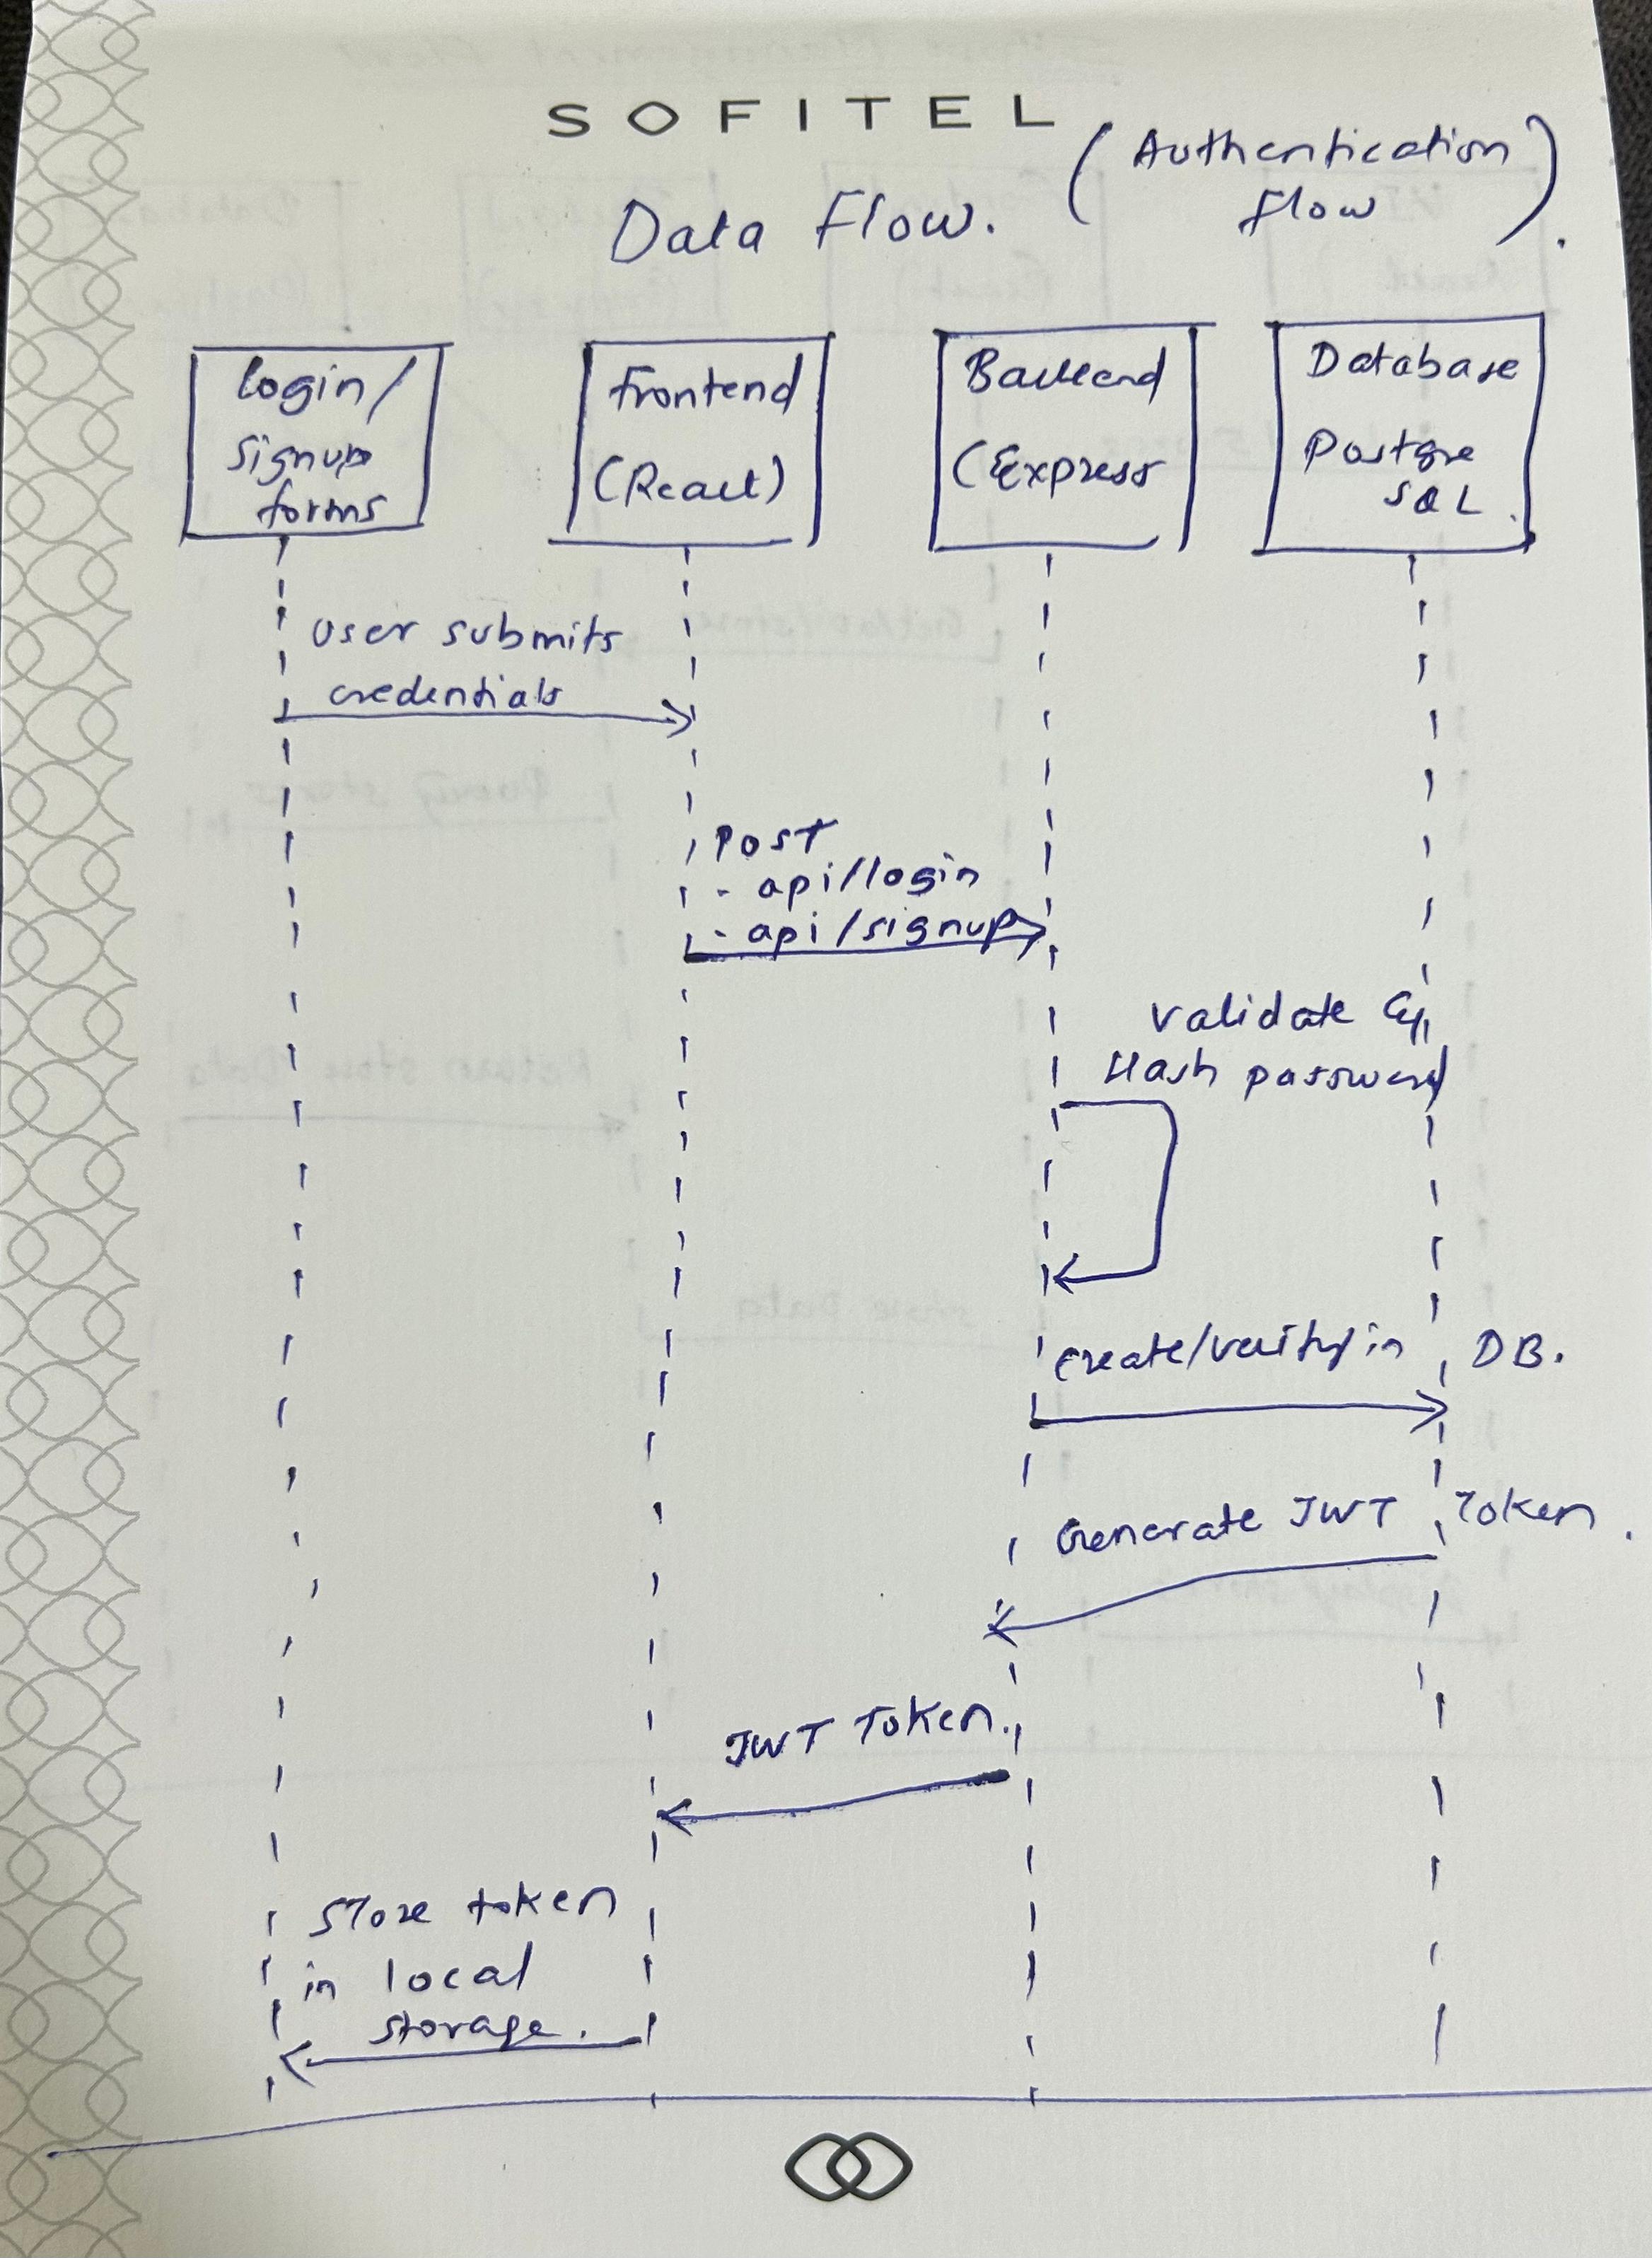 SOFITEL
Data Flow. (Authentication
Flow).
Login/
Signup
forms
Frontend
(React)
Backend
(Express
Database
Postgre
SQL.
User submits
credentials
POST
- api/login
- api/signup
validate &
Hash password
create/verify in DB.
Generate JWT Token.
JWT Token.
Store token
in local
storage.